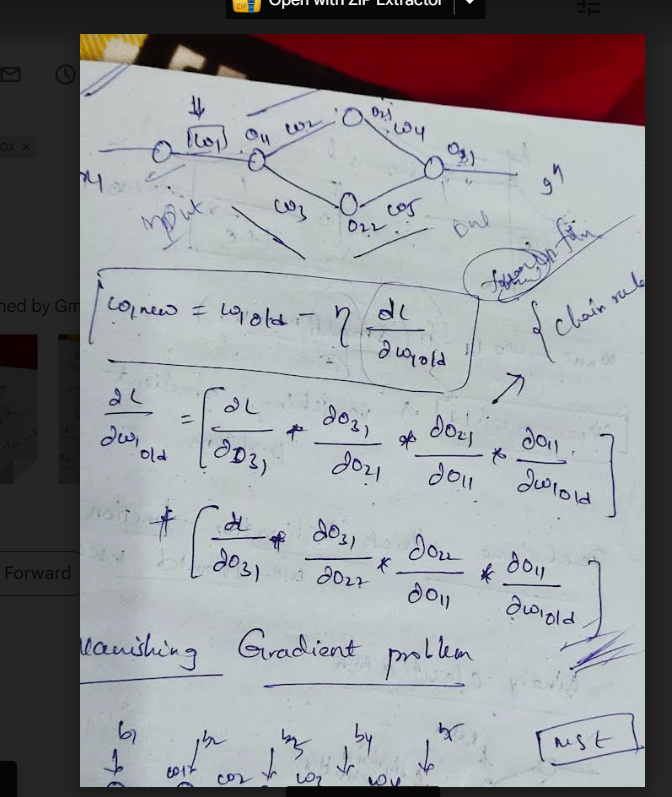 Open with ZIP Extractor
ox ×
ned by Gm
Forward
x1
w1
O11
w2
O21
w4
O31
ŷ
Input
w3
O22
w5
chain rule
w1 new = w1 old - η ∂L/∂w1 old
∂L/∂w1 old = [ ∂L/∂O31 * ∂O31/∂O21 * ∂O21/∂O11 * ∂O11/∂w1 old ]
* [ ∂L/∂O31 * ∂O31/∂O22 * ∂O22/∂O11 * ∂O11/∂w1 old ]
Vanishing Gradient problem
b1 b2 b3 b4 b5
w1 w2 w3 w4